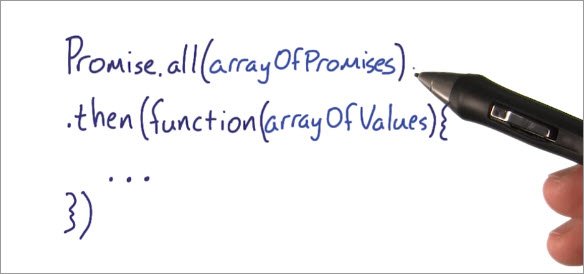 Promise.all(arrayOfPromises)
.then(function(arrayOfValues){
...
})